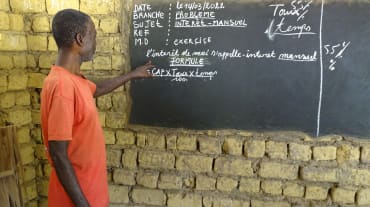 DATE : le 14/03/2022
BRANCHE : PROBLEME
SUJET : INTERÊT-MANSUEL
REF :
M.D : EXERCISE
l'interêt de mai s'appelle-interet mansuel
FORMULE
= CAP X Taux X temps
100
Taux
temps
55%
%